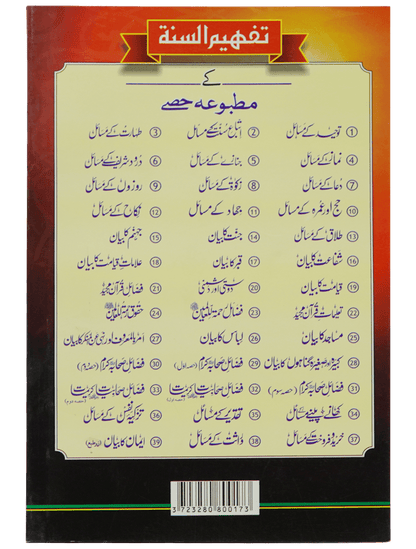 تفہیم السنۃ
کے
مطبوعہ حصے
① توحید کے مسائل ② اتباعِ سنت کے مسائل ③ طہارت کے مسائل
④ نماز کے مسائل ⑤ جنازے کے مسائل ⑥ درود شریف کے مسائل
⑦ دعا کے مسائل ⑧ زکوٰۃ کے مسائل ⑨ روزوں کے مسائل
⑩ حج اور عمرہ کے مسائل ⑪ جہاد کے مسائل ⑫ نکاح کے مسائل
⑬ طلاق کے مسائل ⑭ جنت کا بیان ⑮ جہنم کا بیان
⑯ شفاعت کا بیان ⑰ قبر کا بیان ⑱ علاماتِ قیامت کا بیان
⑲ قیامت کا بیان ⑳ دوستی اور دشمنی ㉑ فضائل قرآن مجید
㉒ تعلیماتِ قرآن مجید ㉓ فضائل رحمۃ للعالمین ﷺ ㉔ حقوق رحمۃ للعالمین ﷺ
㉕ مساجد کا بیان ㉖ لباس کا بیان ㉗ امر بالمعروف اور نہی عن المنکر کا بیان
㉘ کبیرہ و صغیرہ گناہوں کا بیان ㉙ فضائل صحابہ کرام (حصہ اول) ㉚ فضائل صحابہ کرام (حصہ دوم)
㉛ فضائل صحابہ کرام (حصہ سوم) ㉜ فضائل صحابیات (حصہ اول) ㉝ فضائل صحابیات (حصہ دوم)
㉞ کھانے پینے کے مسائل ㉟ تقدیر کے مسائل ㊱ تزکیہ نفس کے مسائل
㊲ خرید و فروخت کے مسائل ㊳ وراثت کے مسائل ㊴ ایمان کا بیان (زیر طبع)
3723280800173